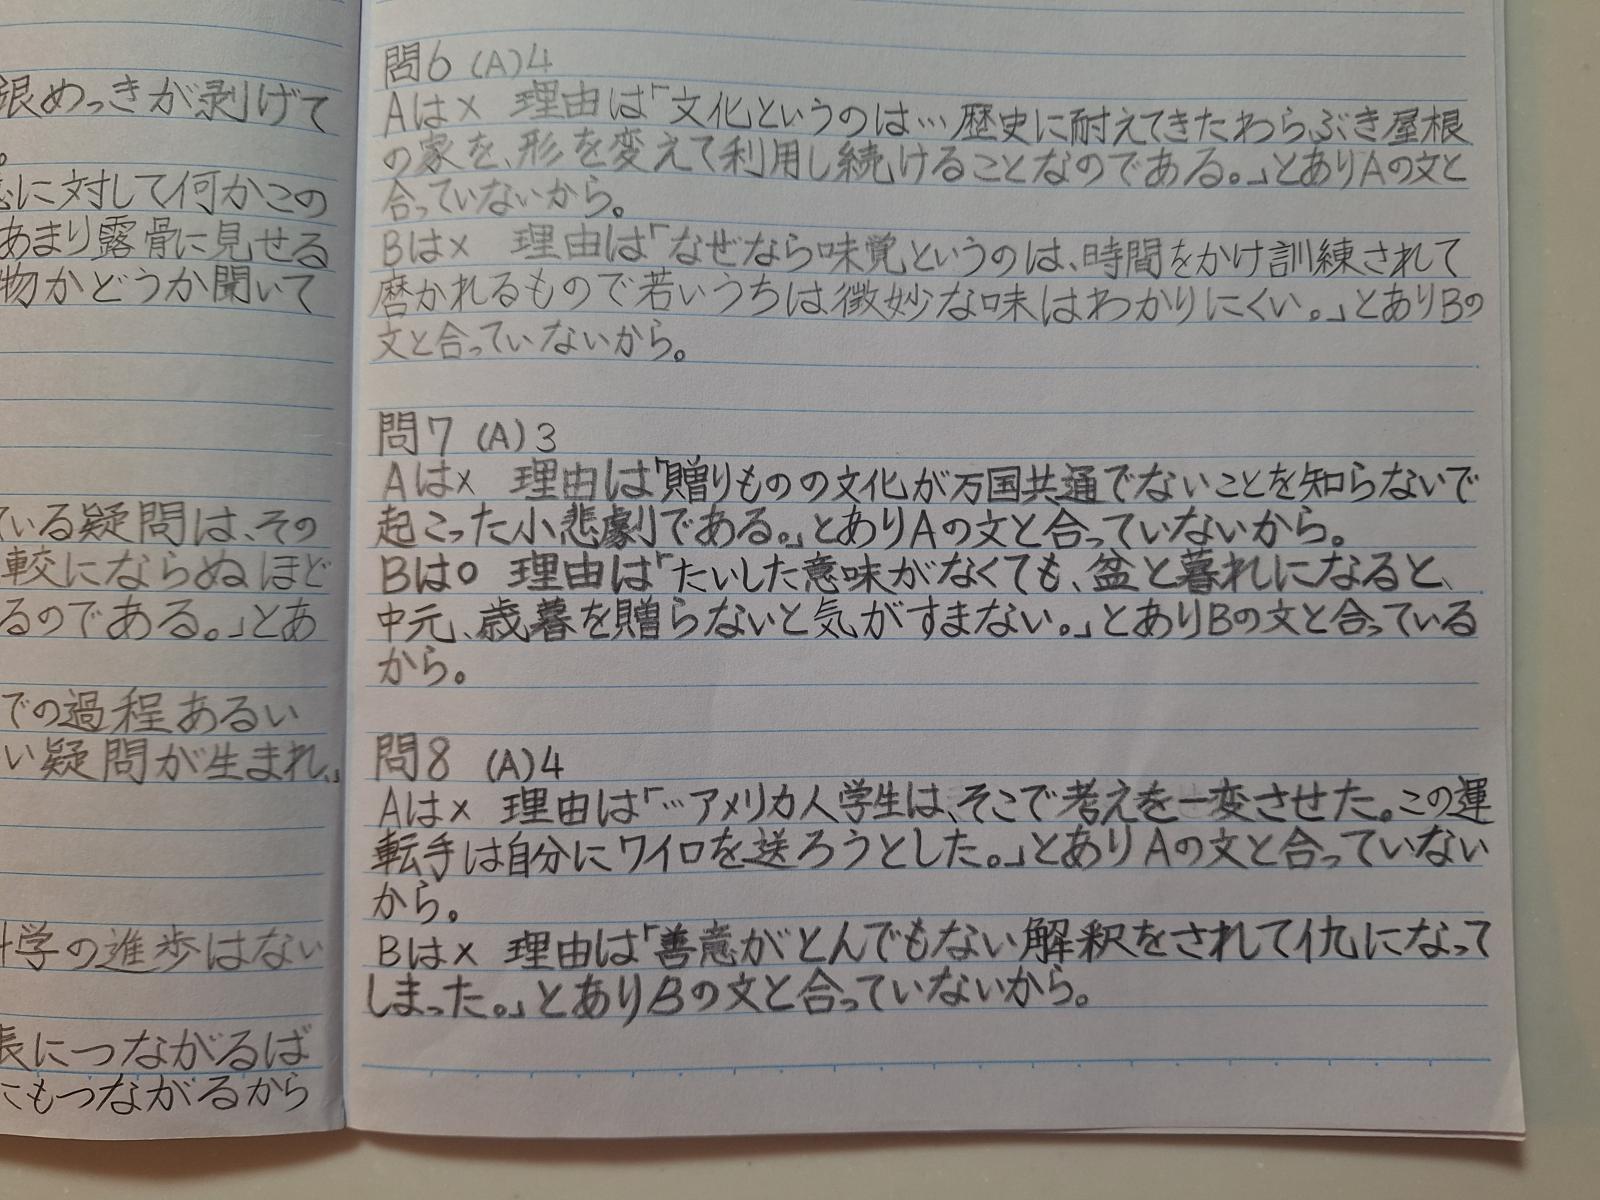 銀めっきが剥げて
。
に対して何かこの
あまり露骨に見せる
物かどうか聞いて
ている疑問は、その
較にならぬほど
るのである。」とあ
での過程あるい
い疑問が生まれ、」
学の進歩はない
長につながるば
にもつながるから
問6 (A)4
Aは× 理由は「文化というのは…歴史に耐えてきたわらぶき屋根
の家を、形を変えて利用し続けることなのである。」とありAの文と
合っていないから。
Bは× 理由は「なぜなら味覚というのは、時間をかけ訓練されて
磨かれるもので若いうちは微妙な味はわかりにくい。」とありBの
文と合っていないから。
問7 (A)3
Aは× 理由は「贈りものの文化が万国共通でないことを知らないで
起こった小悲劇である。」とありAの文と合っていないから。
Bは○ 理由は「たいした意味がなくても、盆と暮れになると、
中元、歳暮を贈らないと気がすまない。」とありBの文と合っている
から。
問8 (A)4
Aは× 理由は「…アメリカ人学生は、そこで考えを一変させた。この運
転手は自分にワイロを送ろうとした。」とありAの文と合っていない
から。
Bは× 理由は「善意がとんでもない解釈をされて仇になって
しまった。」とありBの文と合っていないから。